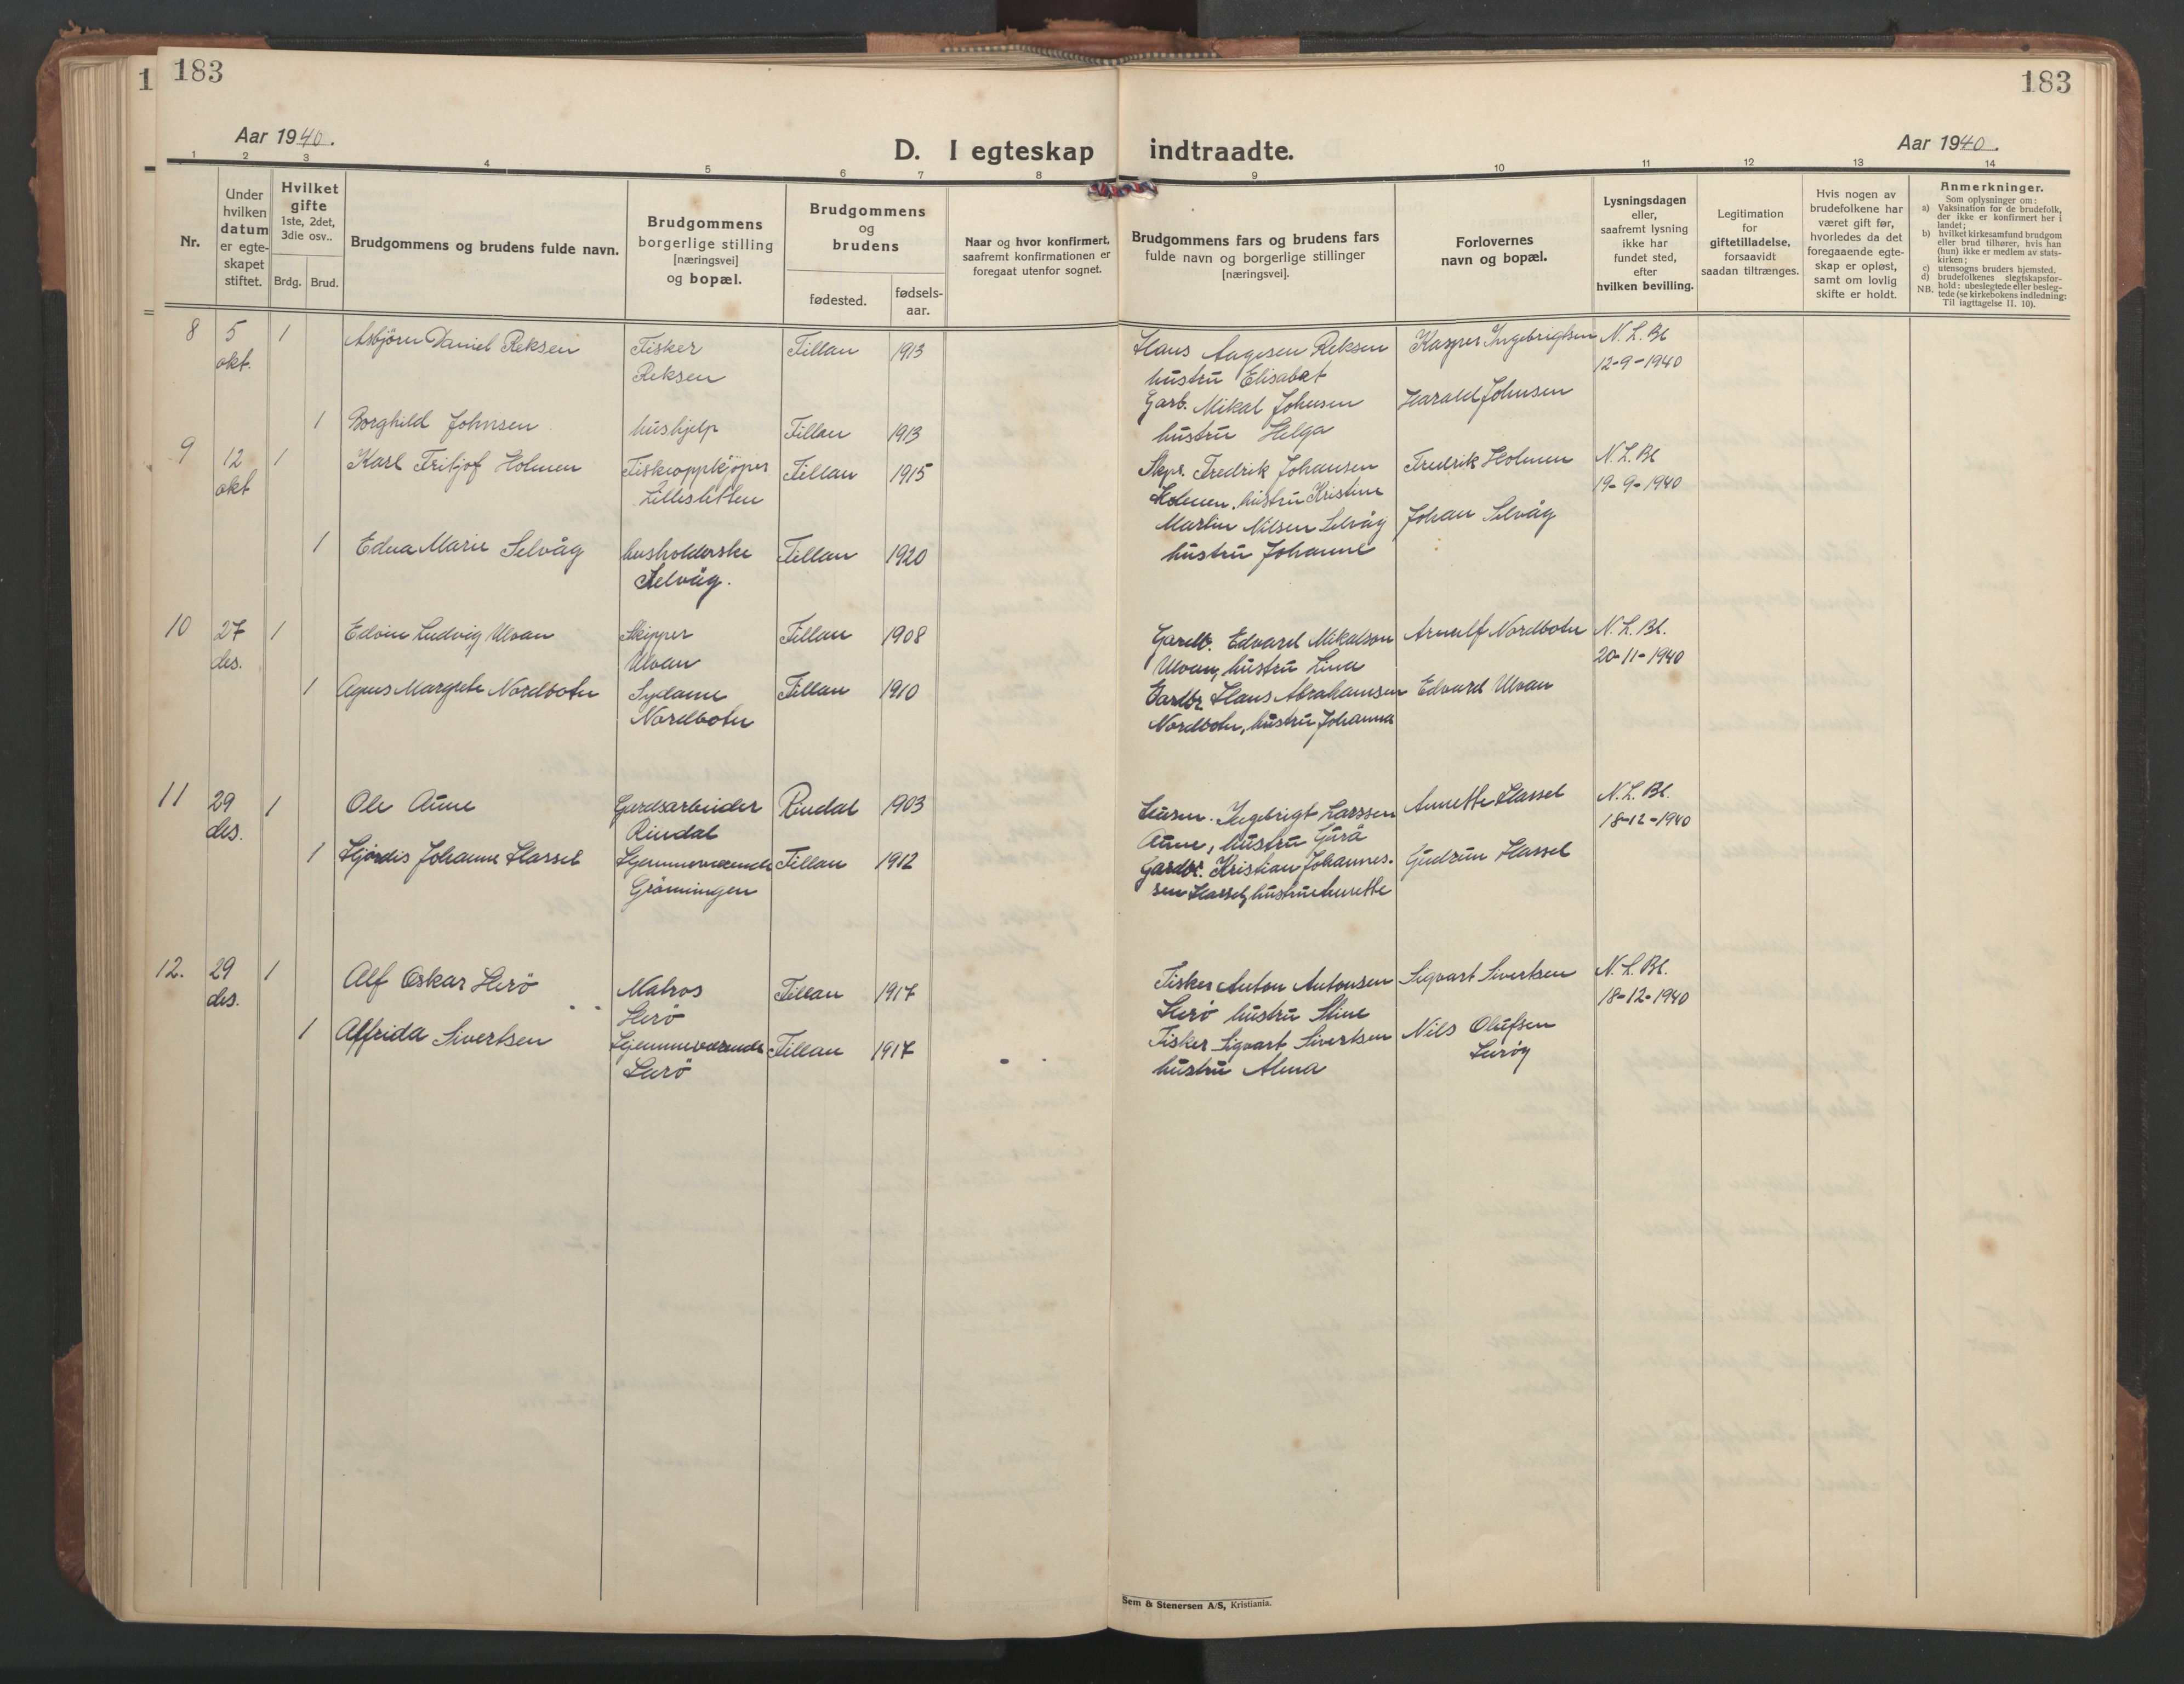 1
183
183
Aar 1940.
D. I egteskap indtraadte.
Aar 1940.
1 2 3 4 5 6 7 8 9 10 11 12 13 14
Nr.
Under
hvilken
datum
er egte-
skapet
stiftet.
Hvilket
gifte
1ste, 2det,
3die osv..
Brdg. Brud.
Brudgommens og brudens fulde navn.
Brudgommens
borgerlige stilling
[næringsvei]
og bopæl.
Brudgommens
og
brudens
fødested.
fødsels-
aar.
Naar og hvor konfirmert,
saafremt konfirmationen er
foregaat utenfor sognet.
Brudgommens fars og brudens fars
fulde navn og borgerlige stillinger
[næringsvei].
Forlovernes
navn og bopæl.
Lysningsdagen
eller,
saafremt lysning
ikke har
fundet sted,
efter
hvilken bevilling.
Legitimation
for
giftetilladelse,
forsaavidt
saadan tiltrænges.
Hvis nogen av
brudefolkene har
været gift før,
hvorledes da det
foregaaende egte-
skap er opløst,
samt om lovlig
skifte er holdt.
Anmerkninger.
Som oplysninger om:
a) Vaksination for de brudefolk,
der ikke er konfirmert her i
landet;
b) hvilket kirkesamfund brudgom
eller brud tilhører, hvis han
(hun) ikke er medlem av stats-
kirken;
c) utensogns bruders hjemsted.
d) brudefolkenes slegtskapsfor-
hold: ubeslegtede eller besleg-
NB. tede (se kirkebokens indledning:
Til iagttagelse II. 10).
8 5 1 Asbjörn Daniel Reksen Fisker Fillan 1913 Hans Aagesen Reksen Kasper Ingebrigtsen N. L. Bl
okt. Reksen hustru Elisabet 12-9-1940
Garb. Mikal Johnsen Harald Johnsen
1 Borghild Johnsen hushjelp Fillan 1913 hustru Helga
9 12 1 Karl Fritjof Holmen Fiskeoppkjöper Fillan 1915 Skpr. Fredrik Johansen Fredrik Holmen N. L. Bl
okt Lillesletten Holmen, hustru Kristine 19-9-1940
Martin Nilsen Selvåg Johan Selvåg
1 Edna Marie Selvåg husholderske Fillan 1920 hustru Johanne
Selvåg.
10 27 1 Edvin Ludvig Ulvan Skipper Fillan 1908 Gardb. Edvard Mikalson Arnulf Nordbotn N. L. Bl.
des. Ulvan Ulvan, hustru Lina 20-11-1940
1 Agnes Margrete Nordbotn Sydame Fillan 1910 Gardbr. Hans Abrahamsen Edvard Ulvan
Nordbotn Nordbotn, hustru Johanna
11 29 1 Ole Aune Gardsarbeider Rindal 1903 Husm. Ingebrigt Larssen Annette Hassel N. L. Bl.
des. Rindal Aune, hustru Gurå 18-12-1940
1 Hjördis Johanne Hassel Hjemmeværende Fillan 1912 Gardbr. Kristian Johannes- Gudrun Hassel
Grönningen sen Hassel, hustru Annette
12. 29 1 Alf Oskar Herö Matros Fillan 1917 Fisker Anton Antonsen Sigvart Sivertsen N. L. Bl.
des. Herö Herö hustru Stine 18-12-1940
1 Alfrida Sivertsen Hjemmeværende Fillan 1917 Fisker Sigvart Sivertsen Nils Olufsen
Herö hustru Alma Heröy
Sem & Stenersen A/S, Kristiania.